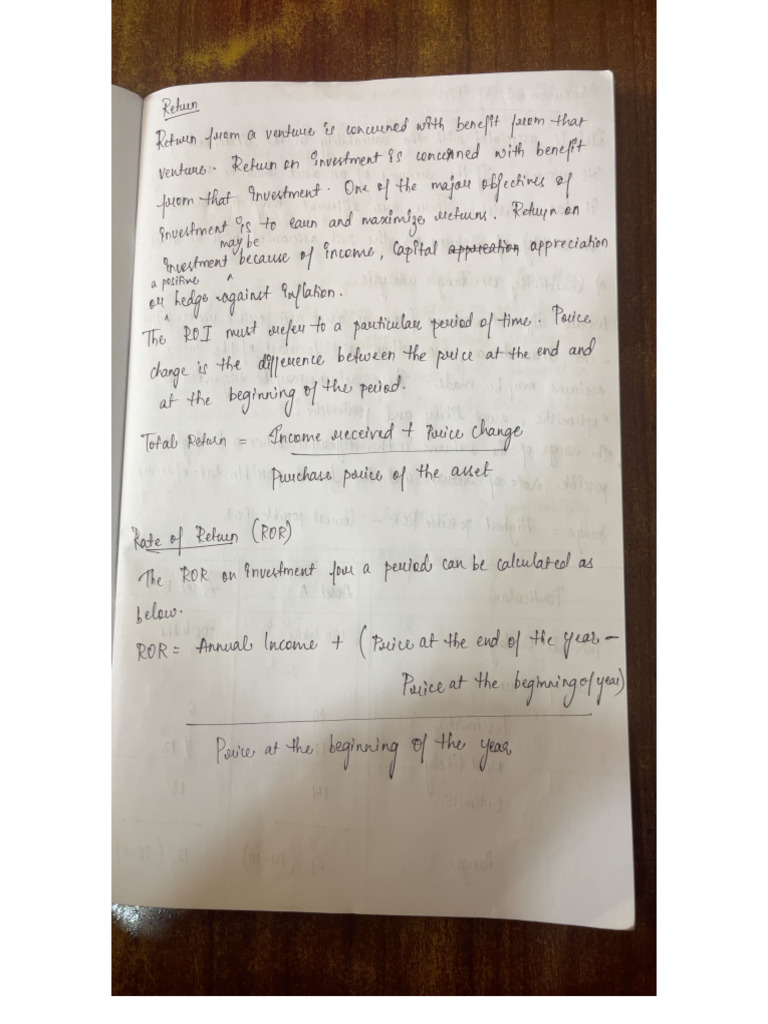 Return
Return from a venture is concerned with benefit from that
venture. Return on investment is concerned with benefit
from that investment. One of the major objectives of
investment is to earn and maximize returns. Return on
may be
investment because of income, Capital appreation appreciation
a positive
or hedge against inflation.
The ROI must refer to a particular period of time. Price
change is the difference between the price at the end and
at the beginning of the period.
Total Return = Income received + Price change
Purchase price of the asset
Rate of Return (ROR)
The ROR on investment for a period can be calculated as
below.
ROR = Annual Income + (Price at the end of the year –
Price at the beginning of year)
Price at the beginning of the year